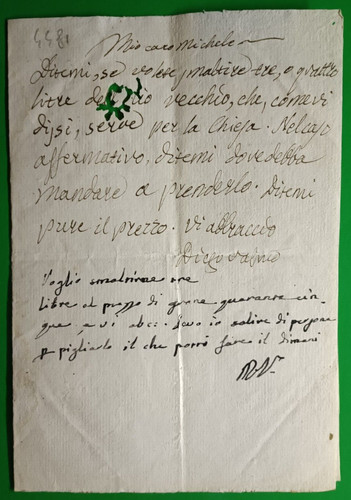 4481
Mio caro Michele
Ditemi, se volete smaltire tre, o quattro
litre del vecchio, che, come vi
dissi, serve per la Chiesa. Nel caso
affermativo, ditemi dove debba
mandare a prenderlo. Ditemi
pure il prezzo. Vi abbraccio
Diego
Voglio smaltirne tre
litre al prezzo di grana quaranta cin-
que e vi abb: devo io salire di persona
pigliarlo il che potrò fare il dimani